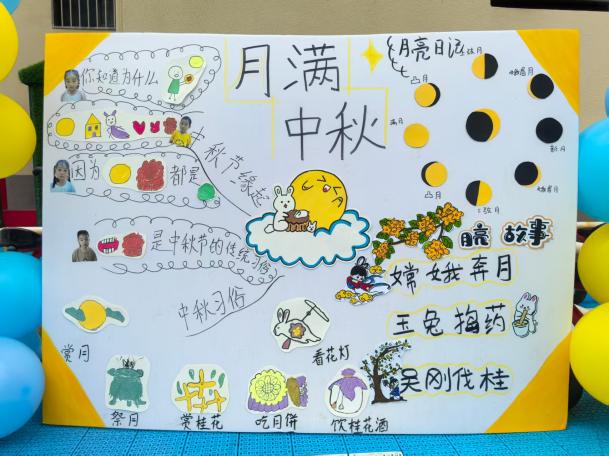 月满
中秋
你知道为什么
因为
都是
中秋节缘起
是中秋节的传统习俗
中秋习俗
赏月
祭月
赏桂花
吃月饼
饮桂花酒
看花灯
月亮日记
弦月
凸月
满月
新月
凸月
弦月
故事
嫦娥奔月
玉兔捣药
吴刚伐桂